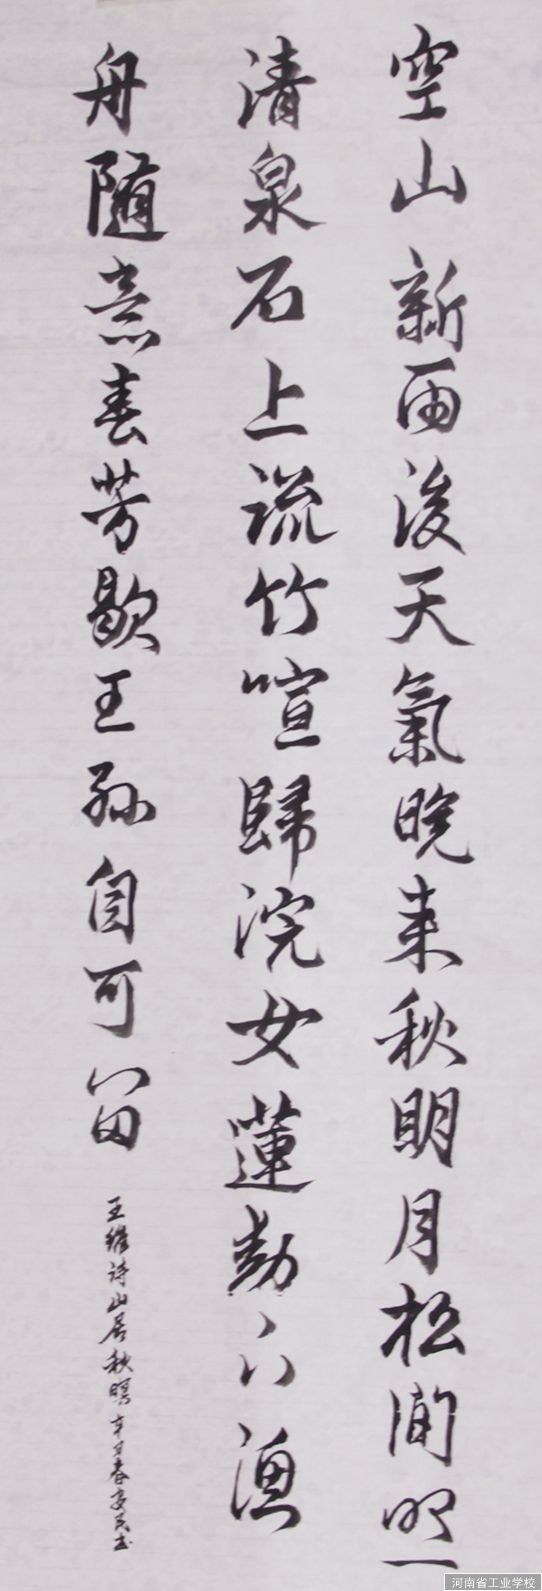 空山新雨後天氣晚来秋明月松間照
清泉石上流竹喧歸浣女蓮動下漁
舟随意春芳歇王孫自可留
王維詩山居秋暝辛卯春安民书
河南省工业学校